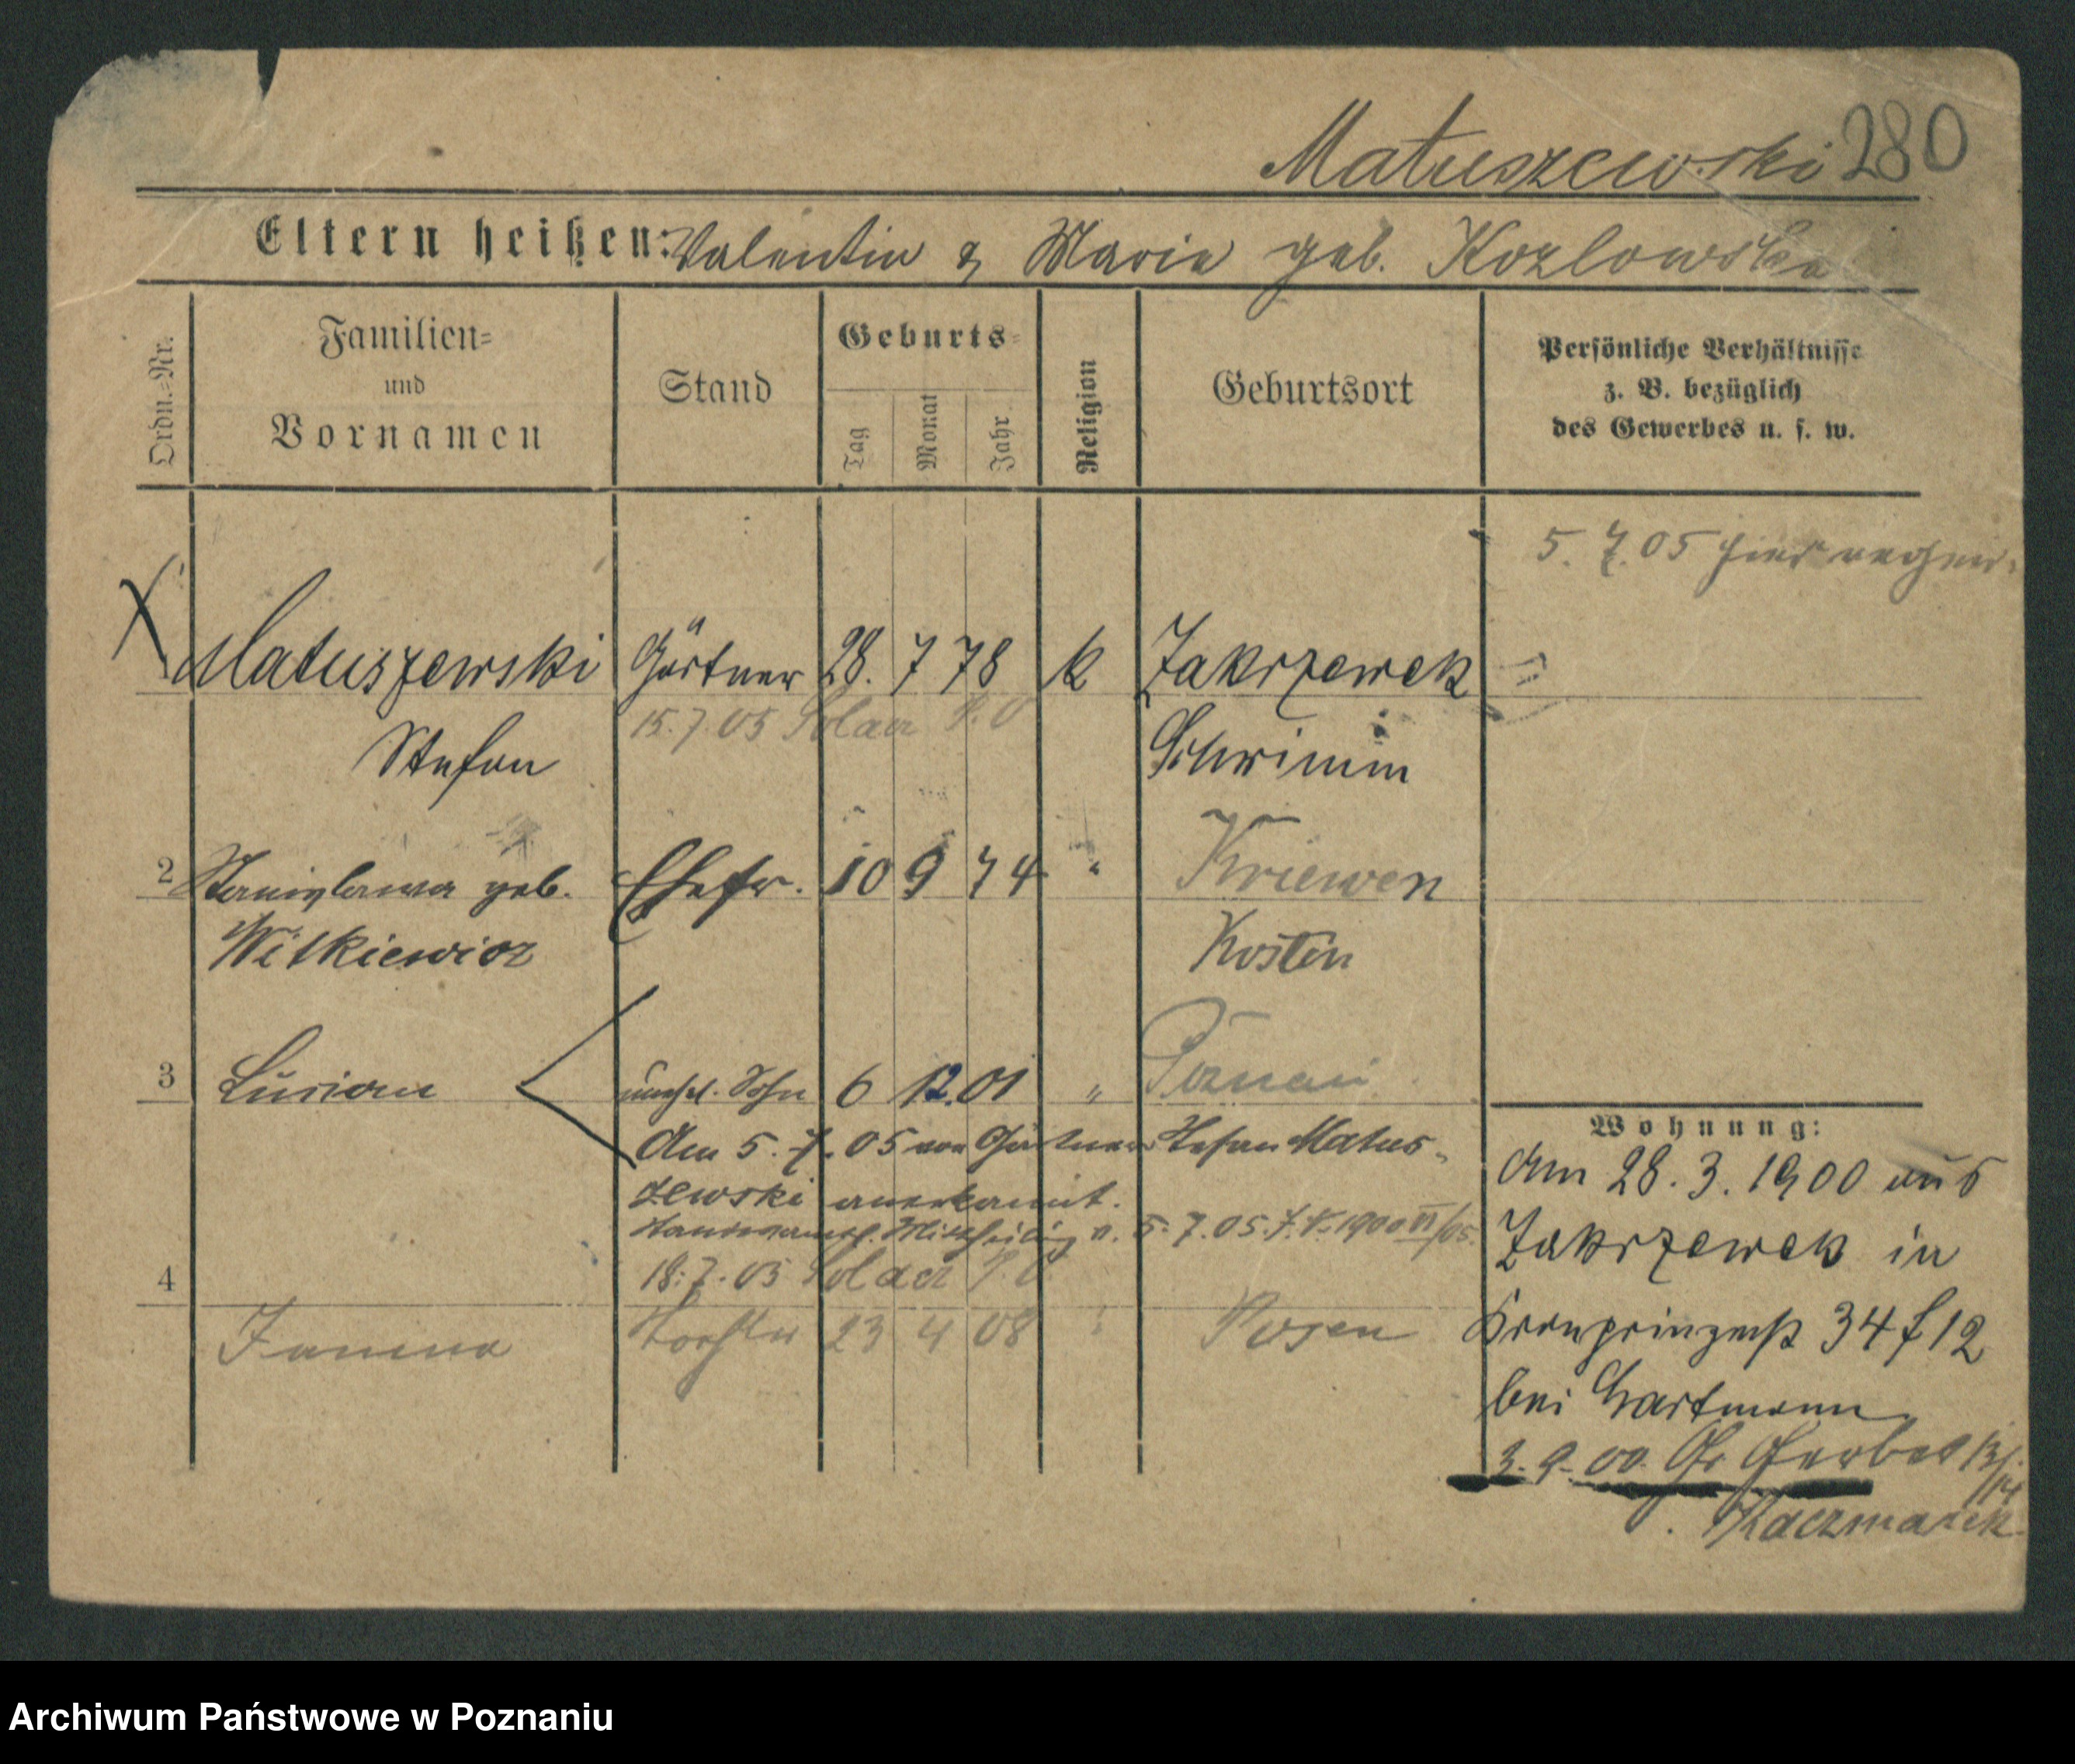 Matuszewski 280
Eltern heißen: Valentin & Marie geb. Kozlowska
Ordn.=Nr.
Familien=
und
Vornamen
Stand
Geburts=
Tag
Monat
Jahr
Religion
Geburtsort
Persönliche Verhältnisse
z. B. bezüglich
des Gewerbes u. s. w.
5. 7. 05 hier
Matuszewski Gärtner 28. 7 78 k Zakrzewek
15. 7. 05 Solacz P. O
Stefan Schrimm
2 Stanislawa geb. Ehefr. 10 9 74 " Kriewen
Witkiewicz Kosten
3 Lucian unehel. Sohn 6 12. 01 " Poznań
Am 5. 7. 05 von Gärtner Stefan Matus-
zewski anerkannt.
Standesamtl. Mittheilung v. 5. 7. 05.
18. 7. 05 Solacz P. O
4
Janina Tochter 23 4 08 " Posen
Wohnung:
Am 28. 3. 1900 aus
Zakrzewek in
Kronprinzenstr 34 f 12
bei Hartmann
3. 9. 00. Gr Gerber 13/14
Kaczmarek
Archiwum Państwowe w Poznaniu